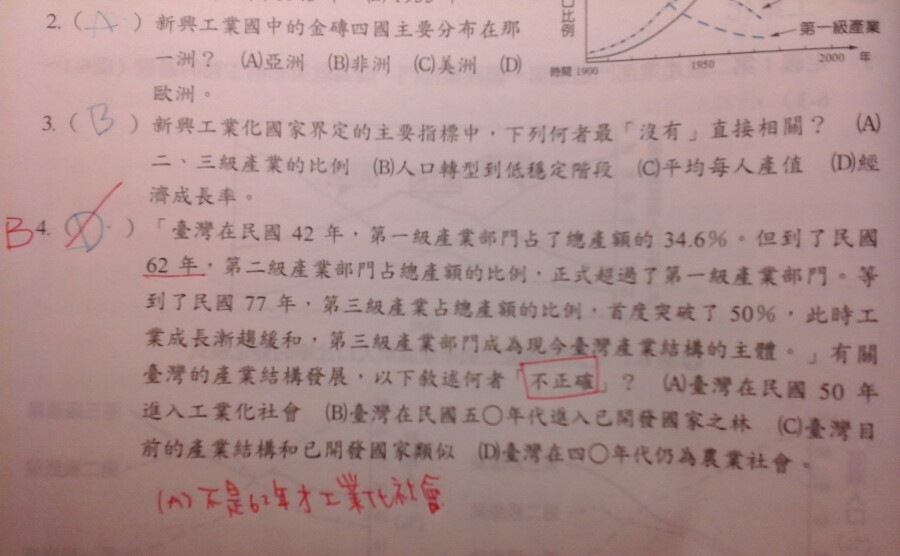 口比例
第一級產業
時間 1900 1950 2000 年
2.( A ) 新興工業國中的金磚四國主要分布在那
一洲? (A)亞洲 (B)非洲 (C)美洲 (D)
歐洲。
3.( B ) 新興工業化國家界定的主要指標中,下列何者最「沒有」直接相關? (A)
二、三級產業的比例 (B)人口轉型到低穩定階段 (C)平均每人產值 (D)經
濟成長率。
B 4.( D ) 「臺灣在民國 42 年,第一級產業部門占了總產額的 34.6%。但到了民國
62 年,第二級產業部門占總產額的比例,正式超過了第一級產業部門。等
到了民國 77 年,第三級產業占總產額的比例,首度突破了 50%,此時工
業成長漸趨緩和,第三級產業部門成為現今臺灣產業結構的主體。」有關
臺灣的產業結構發展,以下敘述何者「不正確」? (A)臺灣在民國 50 年
進入工業化社會 (B)臺灣在民國五〇年代進入已開發國家之林 (C)臺灣目
前的產業結構和已開發國家類似 (D)臺灣在四〇年代仍為農業社會。
(A)不是62年才工業化社會